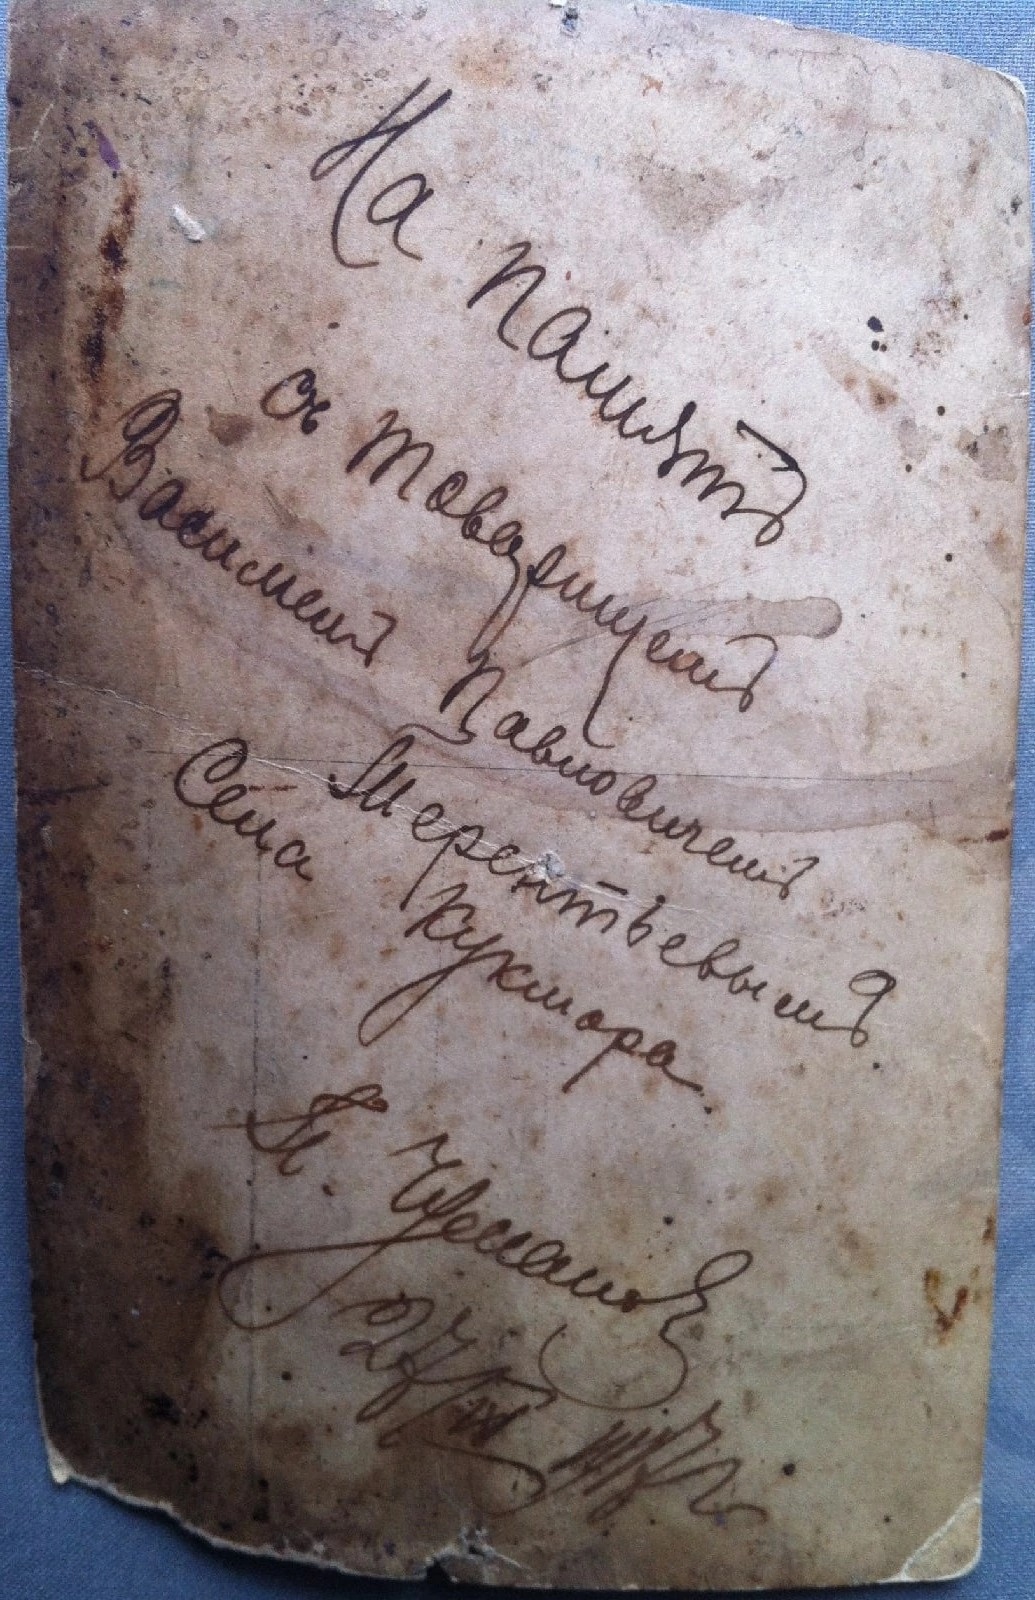 На память
съ товарищемъ
Василемъ Павловичемъ
Терентьевымъ
Села Кукмора.